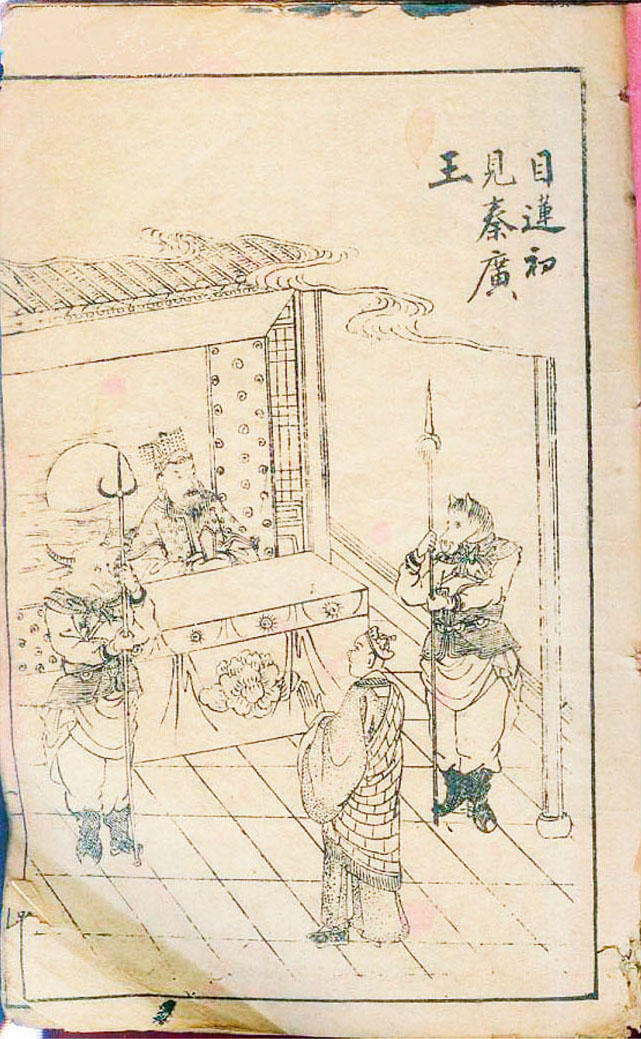 目蓮初
見秦廣
王